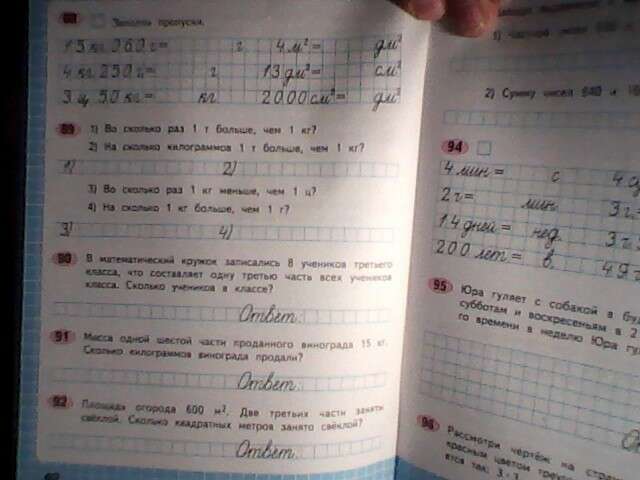 88 Заполни пропуски.
15 кг 060 г = г 4 м² = дм²
4 кг 250 г = г 13 дм² = см²
3 ц 50 кг = кг 2000 см² = дм²
89 1) Во сколько раз 1 т больше, чем 1 кг?
2) На сколько килограммов 1 т больше, чем 1 кг?
1) 2)
3) Во сколько раз 1 кг меньше, чем 1 ц?
4) На сколько 1 кг больше, чем 1 г?
3) 4)
90 В математический кружок записались 8 учеников третьего
класса, что составляет одну третью часть всех учеников
класса. Сколько учеников в классе?
Ответ:
91 Масса одной шестой части проданного винограда 15 кг.
Сколько килограммов винограда продали?
Ответ:
92 Площадь огорода 600 м². Две третьих части занято
свёклой. Сколько квадратных метров занято свёклой?
Ответ:
2) Сумму чисел 640 и
94
4 мин = с 4
2 г = мин 3
14 дней = нед. 3
200 лет = в. 49
95 Юра гуляет с собакой в
субботам и воскресеньям в 2
го времени в неделю Юра
96 Рассмотри чертёж на
красным цветом
ется так: 3 : 1